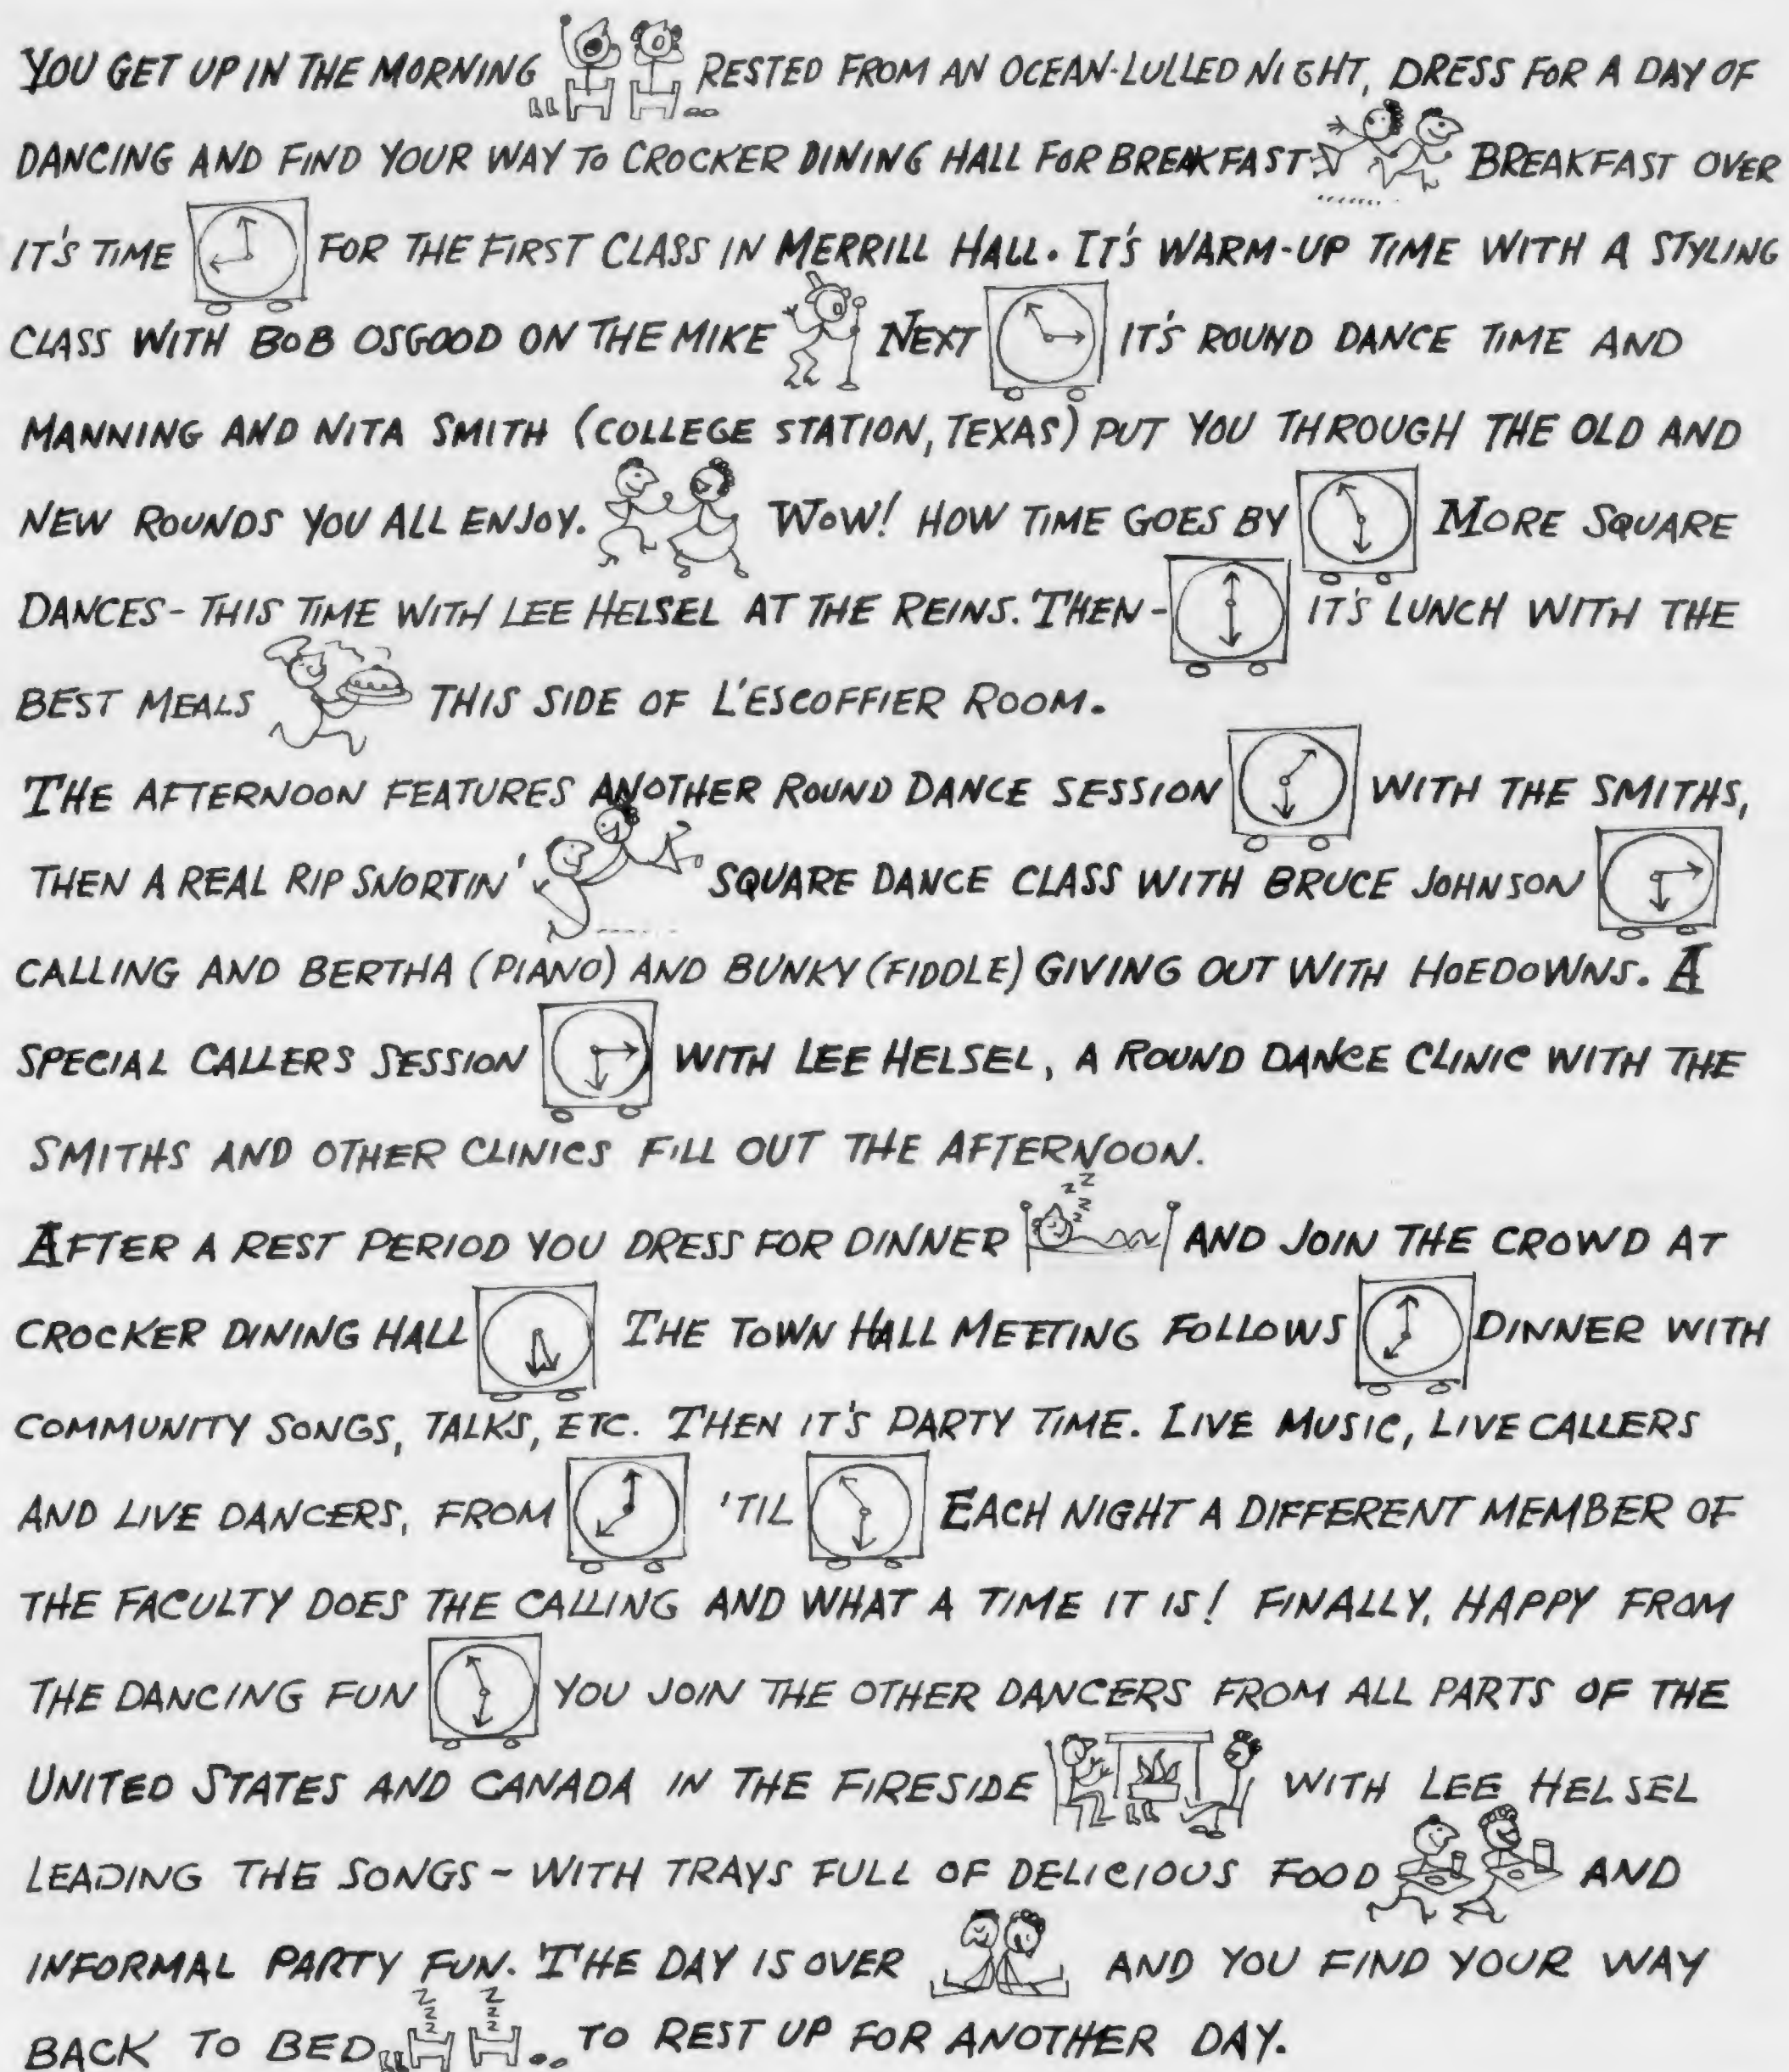 YOU GET UP IN THE MORNING RESTED FROM AN OCEAN-LULLED NIGHT, DRESS FOR A DAY OF
DANCING AND FIND YOUR WAY TO CROCKER DINING HALL FOR BREAKFAST BREAKFAST OVER
IT'S TIME FOR THE FIRST CLASS IN MERRILL HALL. IT'S WARM-UP TIME WITH A STYLING
CLASS WITH BOB OSGOOD ON THE MIKE NEXT IT'S ROUND DANCE TIME AND
MANNING AND NITA SMITH (COLLEGE STATION, TEXAS) PUT YOU THROUGH THE OLD AND
NEW ROUNDS YOU ALL ENJOY. WOW! HOW TIME GOES BY MORE SQUARE
DANCES - THIS TIME WITH LEE HELSEL AT THE REINS. THEN - IT'S LUNCH WITH THE
BEST MEALS THIS SIDE OF L'ESCOFFIER ROOM.
THE AFTERNOON FEATURES ANOTHER ROUND DANCE SESSION WITH THE SMITHS,
THEN A REAL RIP SNORTIN' SQUARE DANCE CLASS WITH BRUCE JOHNSON
CALLING AND BERTHA (PIANO) AND BUNKY (FIDDLE) GIVING OUT WITH HOEDOWNS. A
SPECIAL CALLERS SESSION WITH LEE HELSEL, A ROUND DANCE CLINIC WITH THE
SMITHS AND OTHER CLINICS FILL OUT THE AFTERNOON.
AFTER A REST PERIOD YOU DRESS FOR DINNER zzzz AND JOIN THE CROWD AT
CROCKER DINING HALL THE TOWN HALL MEETING FOLLOWS DINNER WITH
COMMUNITY SONGS, TALKS, ETC. THEN IT'S PARTY TIME. LIVE MUSIC, LIVE CALLERS
AND LIVE DANCERS, FROM 'TIL EACH NIGHT A DIFFERENT MEMBER OF
THE FACULTY DOES THE CALLING AND WHAT A TIME IT IS! FINALLY, HAPPY FROM
THE DANCING FUN YOU JOIN THE OTHER DANCERS FROM ALL PARTS OF THE
UNITED STATES AND CANADA IN THE FIRESIDE WITH LEE HELSEL
LEADING THE SONGS - WITH TRAYS FULL OF DELICIOUS FOOD AND
INFORMAL PARTY FUN. THE DAY IS OVER AND YOU FIND YOUR WAY
BACK TO BED zzzz zzzz TO REST UP FOR ANOTHER DAY.